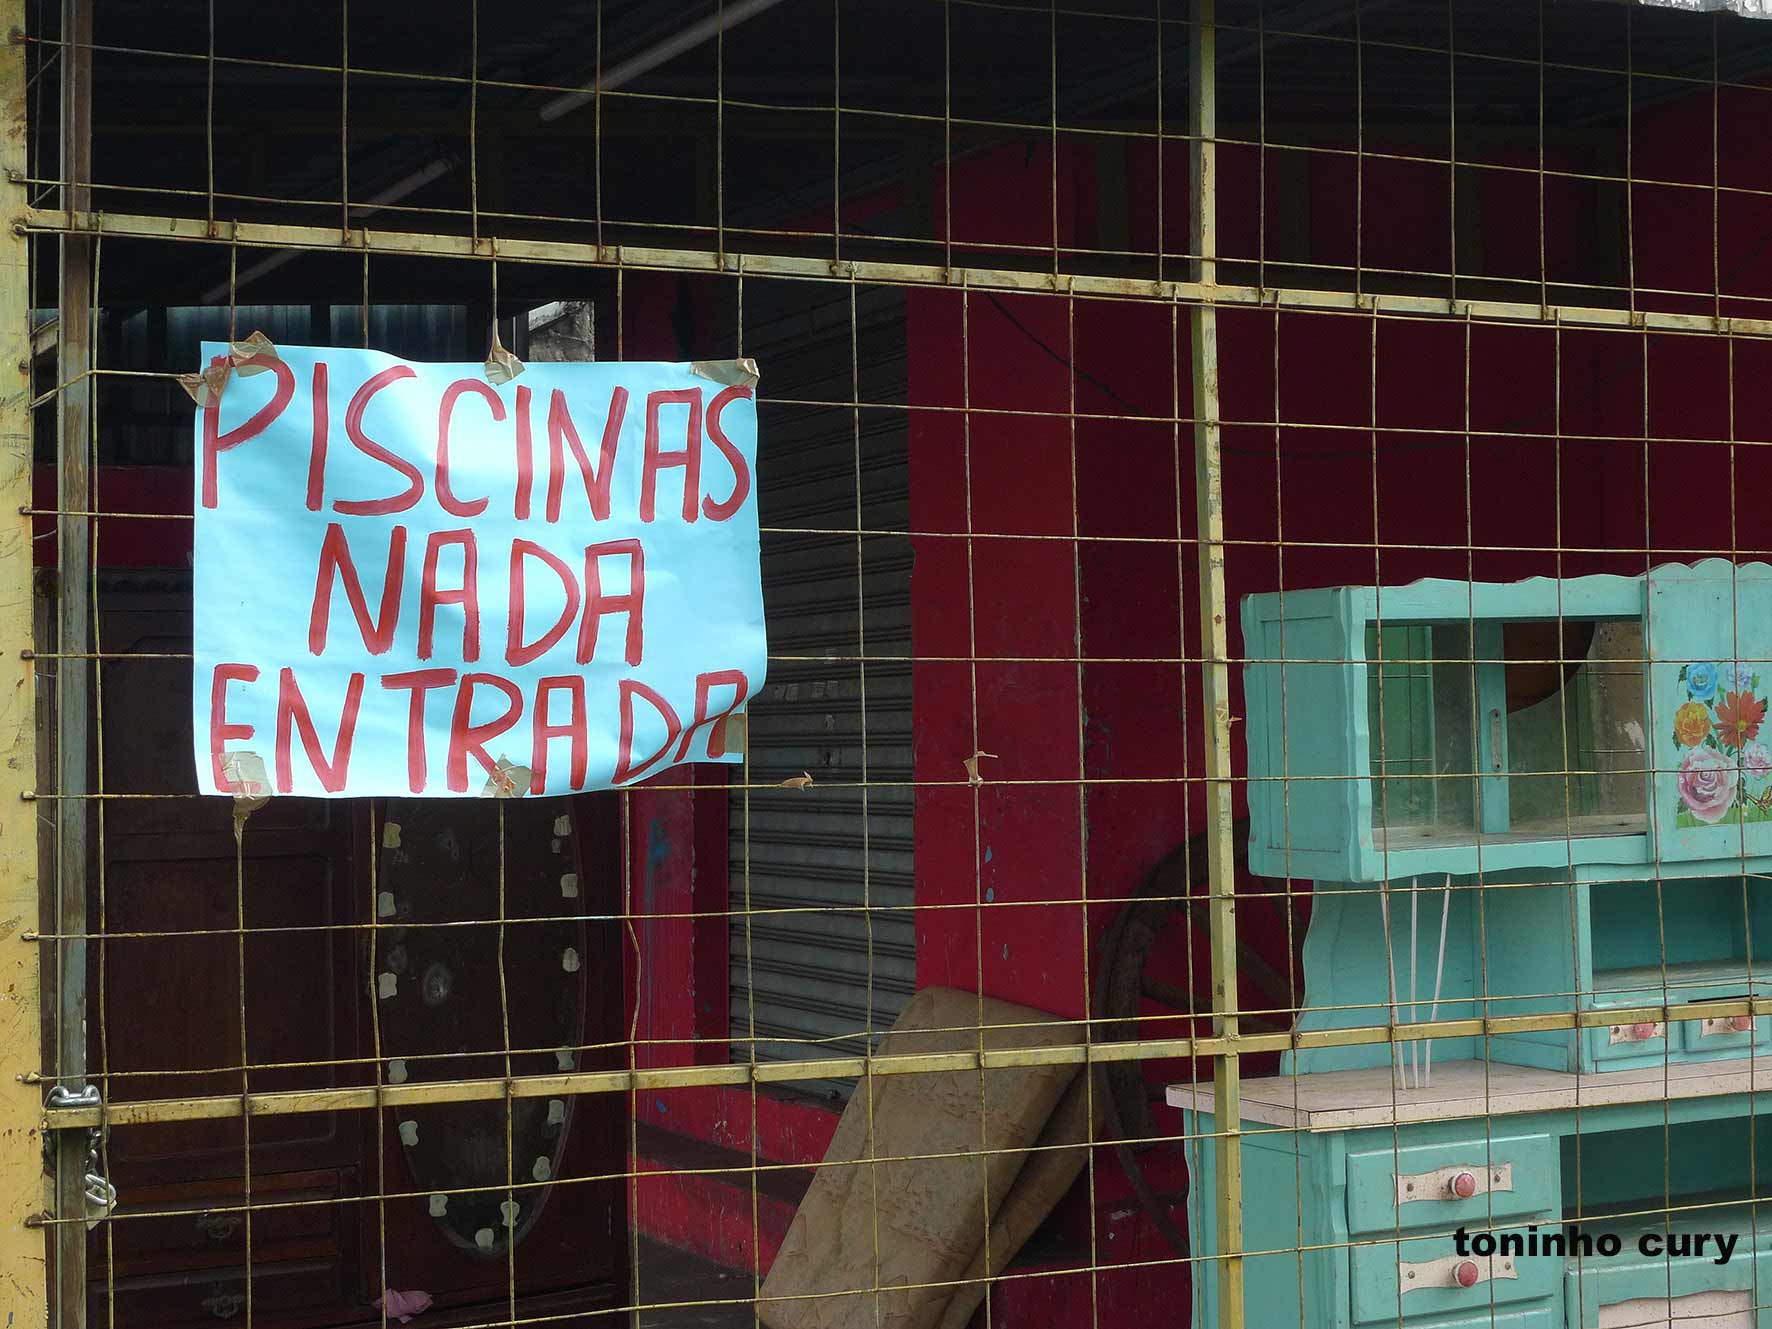 PISCINAS
NADA
ENTRADA
toninho cury